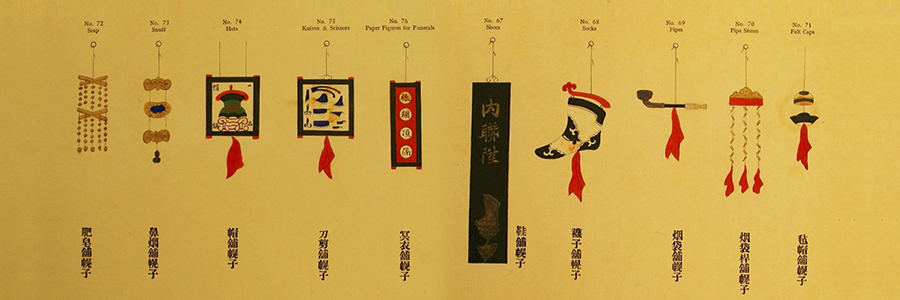 No. 72
Soap
No. 73
Snuff
No. 74
Hats
No. 75
Knives & Scissors
No. 76
Paper Figures for Funerals
No. 67
Shoes
No. 68
Socks
No. 69
Pipes
No. 70
Pipe Stems
No. 71
Felt Caps
內聯陞
肥皂舖幌子
鼻烟舖幌子
帽舖幌子
刀剪舖幌子
冥衣舖幌子
鞋舖幌子
襪子舖幌子
烟袋舖幌子
烟袋桿舖幌子
毡帽舖幌子